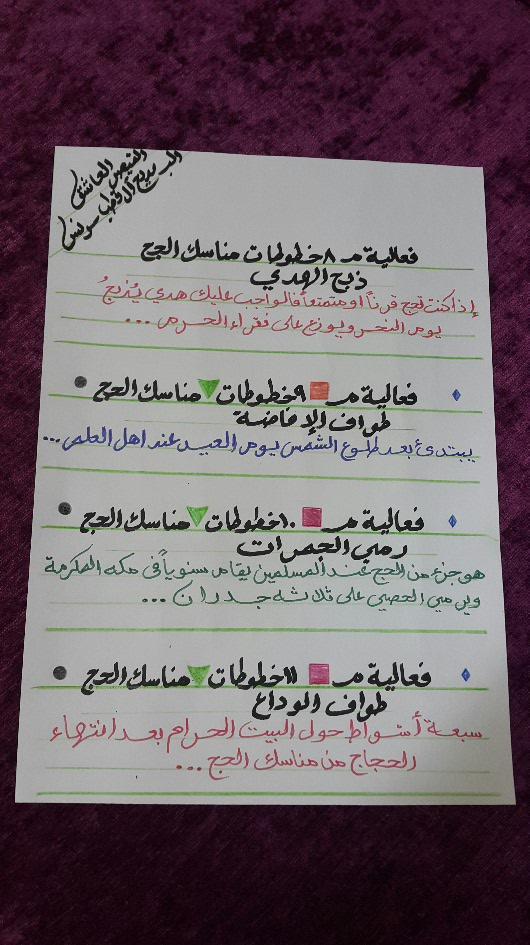 القيصر العاشق
فعالية مـ ٨ خطوطات مناسك الحج
ذبح الهدي
إذا كنت تحج قرناً او متمتعاً فالواجب عليك هدي يُذبحُ
يوم النحر ويوزع على فقراء الحرم ...
فعالية مـ ٩ خطوطات مناسك الحج
طواف الإفاضة
يبتدئ بعد طلوع الشمس يوم العيد عند اهل العلم ...
فعالية مـ ١٠ خطوطات مناسك الحج
رمي الجمرات
هو جزء من الحج عند المسلمين يقام سنوياً في مكه المكرمة
ويرمي الحصي على ثلاثه جدران ...
فعالية مـ ١١ خطوطات مناسك الحج
طواف الوداع
سبعة أشواط حول البيت الحرام بعد انتهاء
الحجاج من مناسك الحج ...